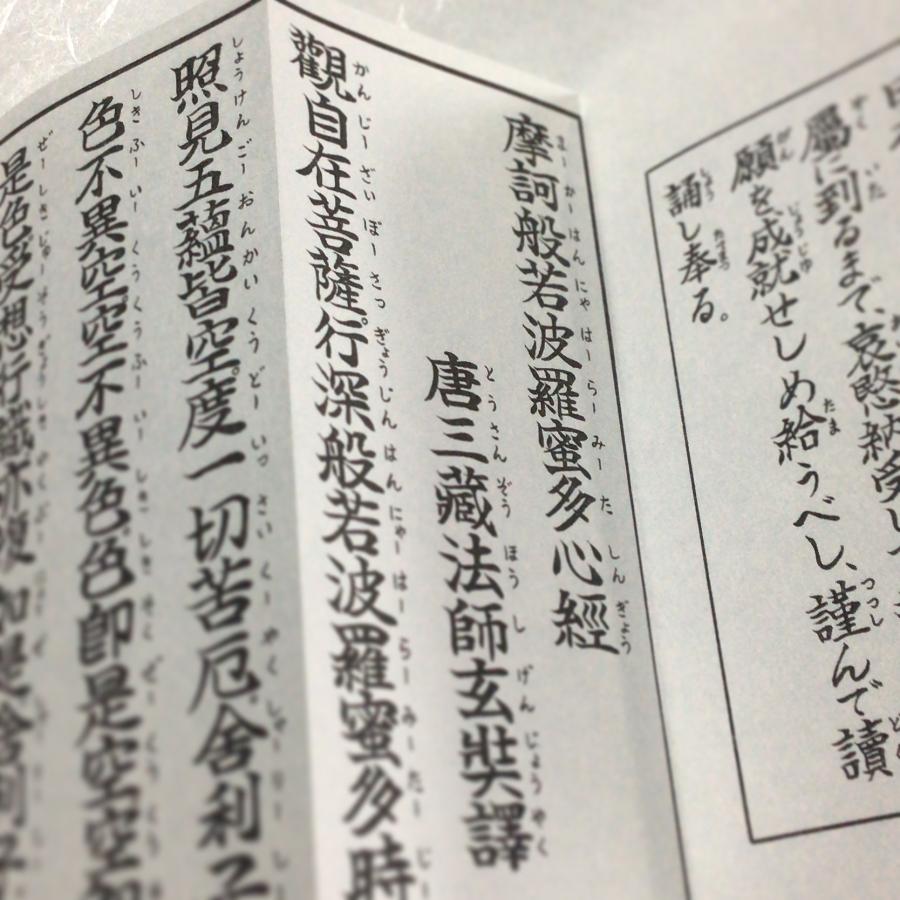 屬に到るまで、哀愍納受し
願を成就せしめ給うべし、謹んで讀
誦し奉る。
摩訶般若波羅蜜多心經
唐三藏法師玄奘譯
觀自在菩薩行深般若波羅蜜多時
照見五蘊皆空度一切苦厄舍利子
色不異空空不異色色卽是空空卽
是色受想行識亦復如是舍利子